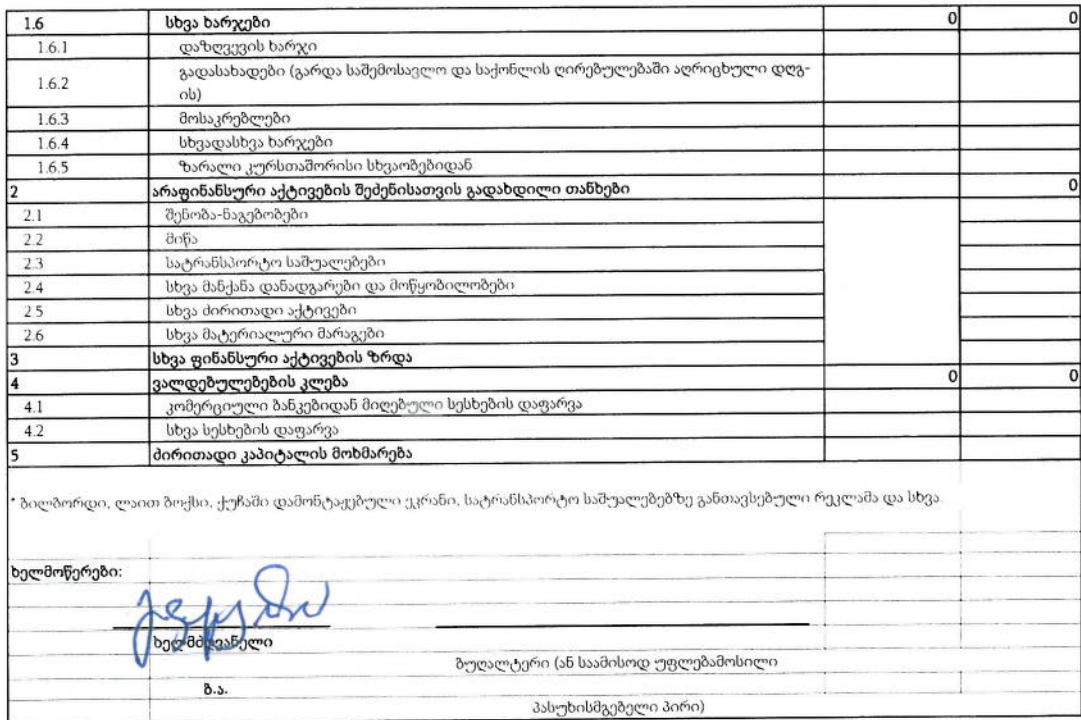 1.6 სხვა ხარჯები 0 0
1.6.1 დაზღვევის ხარჯი
1.6.2 გადასახადები (გარდა საშემოსავლო და საქონლის ღირებულებაში აღრიცხული დღგ-
ის)
1.6.3 მოსაკრებლები
1.6.4 სხვადასხვა ხარჯები
1.6.5 ზარალი კურსთაშორისი სხვაობებიდან
2 არაფინანსური აქტივების შეძენისათვის გადახდილი თანხები 0
2.1 შენობა-ნაგებობები
2.2 მიწა
2.3 სატრანსპორტო საშუალებები
2.4 სხვა მანქანა დანადგარები და მოწყობილობები
2.5 სხვა ძირითადი აქტივები
2.6 სხვა მატერიალური მარაგები
3 სხვა ფინანსური აქტივების ზრდა
4 ვალდებულებების კლება 0 0
4.1 კომერციული ბანკებიდან მიღებული სესხების დაფარვა
4.2 სხვა სესხების დაფარვა
5 ძირითადი კაპიტალის მოხმარება
* ბილბორდი, ლაით ბოქსი, ქუჩაში დამონტაჟებული ეკრანი, სატრანსპორტო საშუალებებზე განთავსებული რეკლამა და სხვა
ხელმოწერები:
ხელმძღვანელი
ბუღალტერი (ან საამისოდ უფლებამოსილი
ბ.ა.
პასუხისმგებელი პირი)